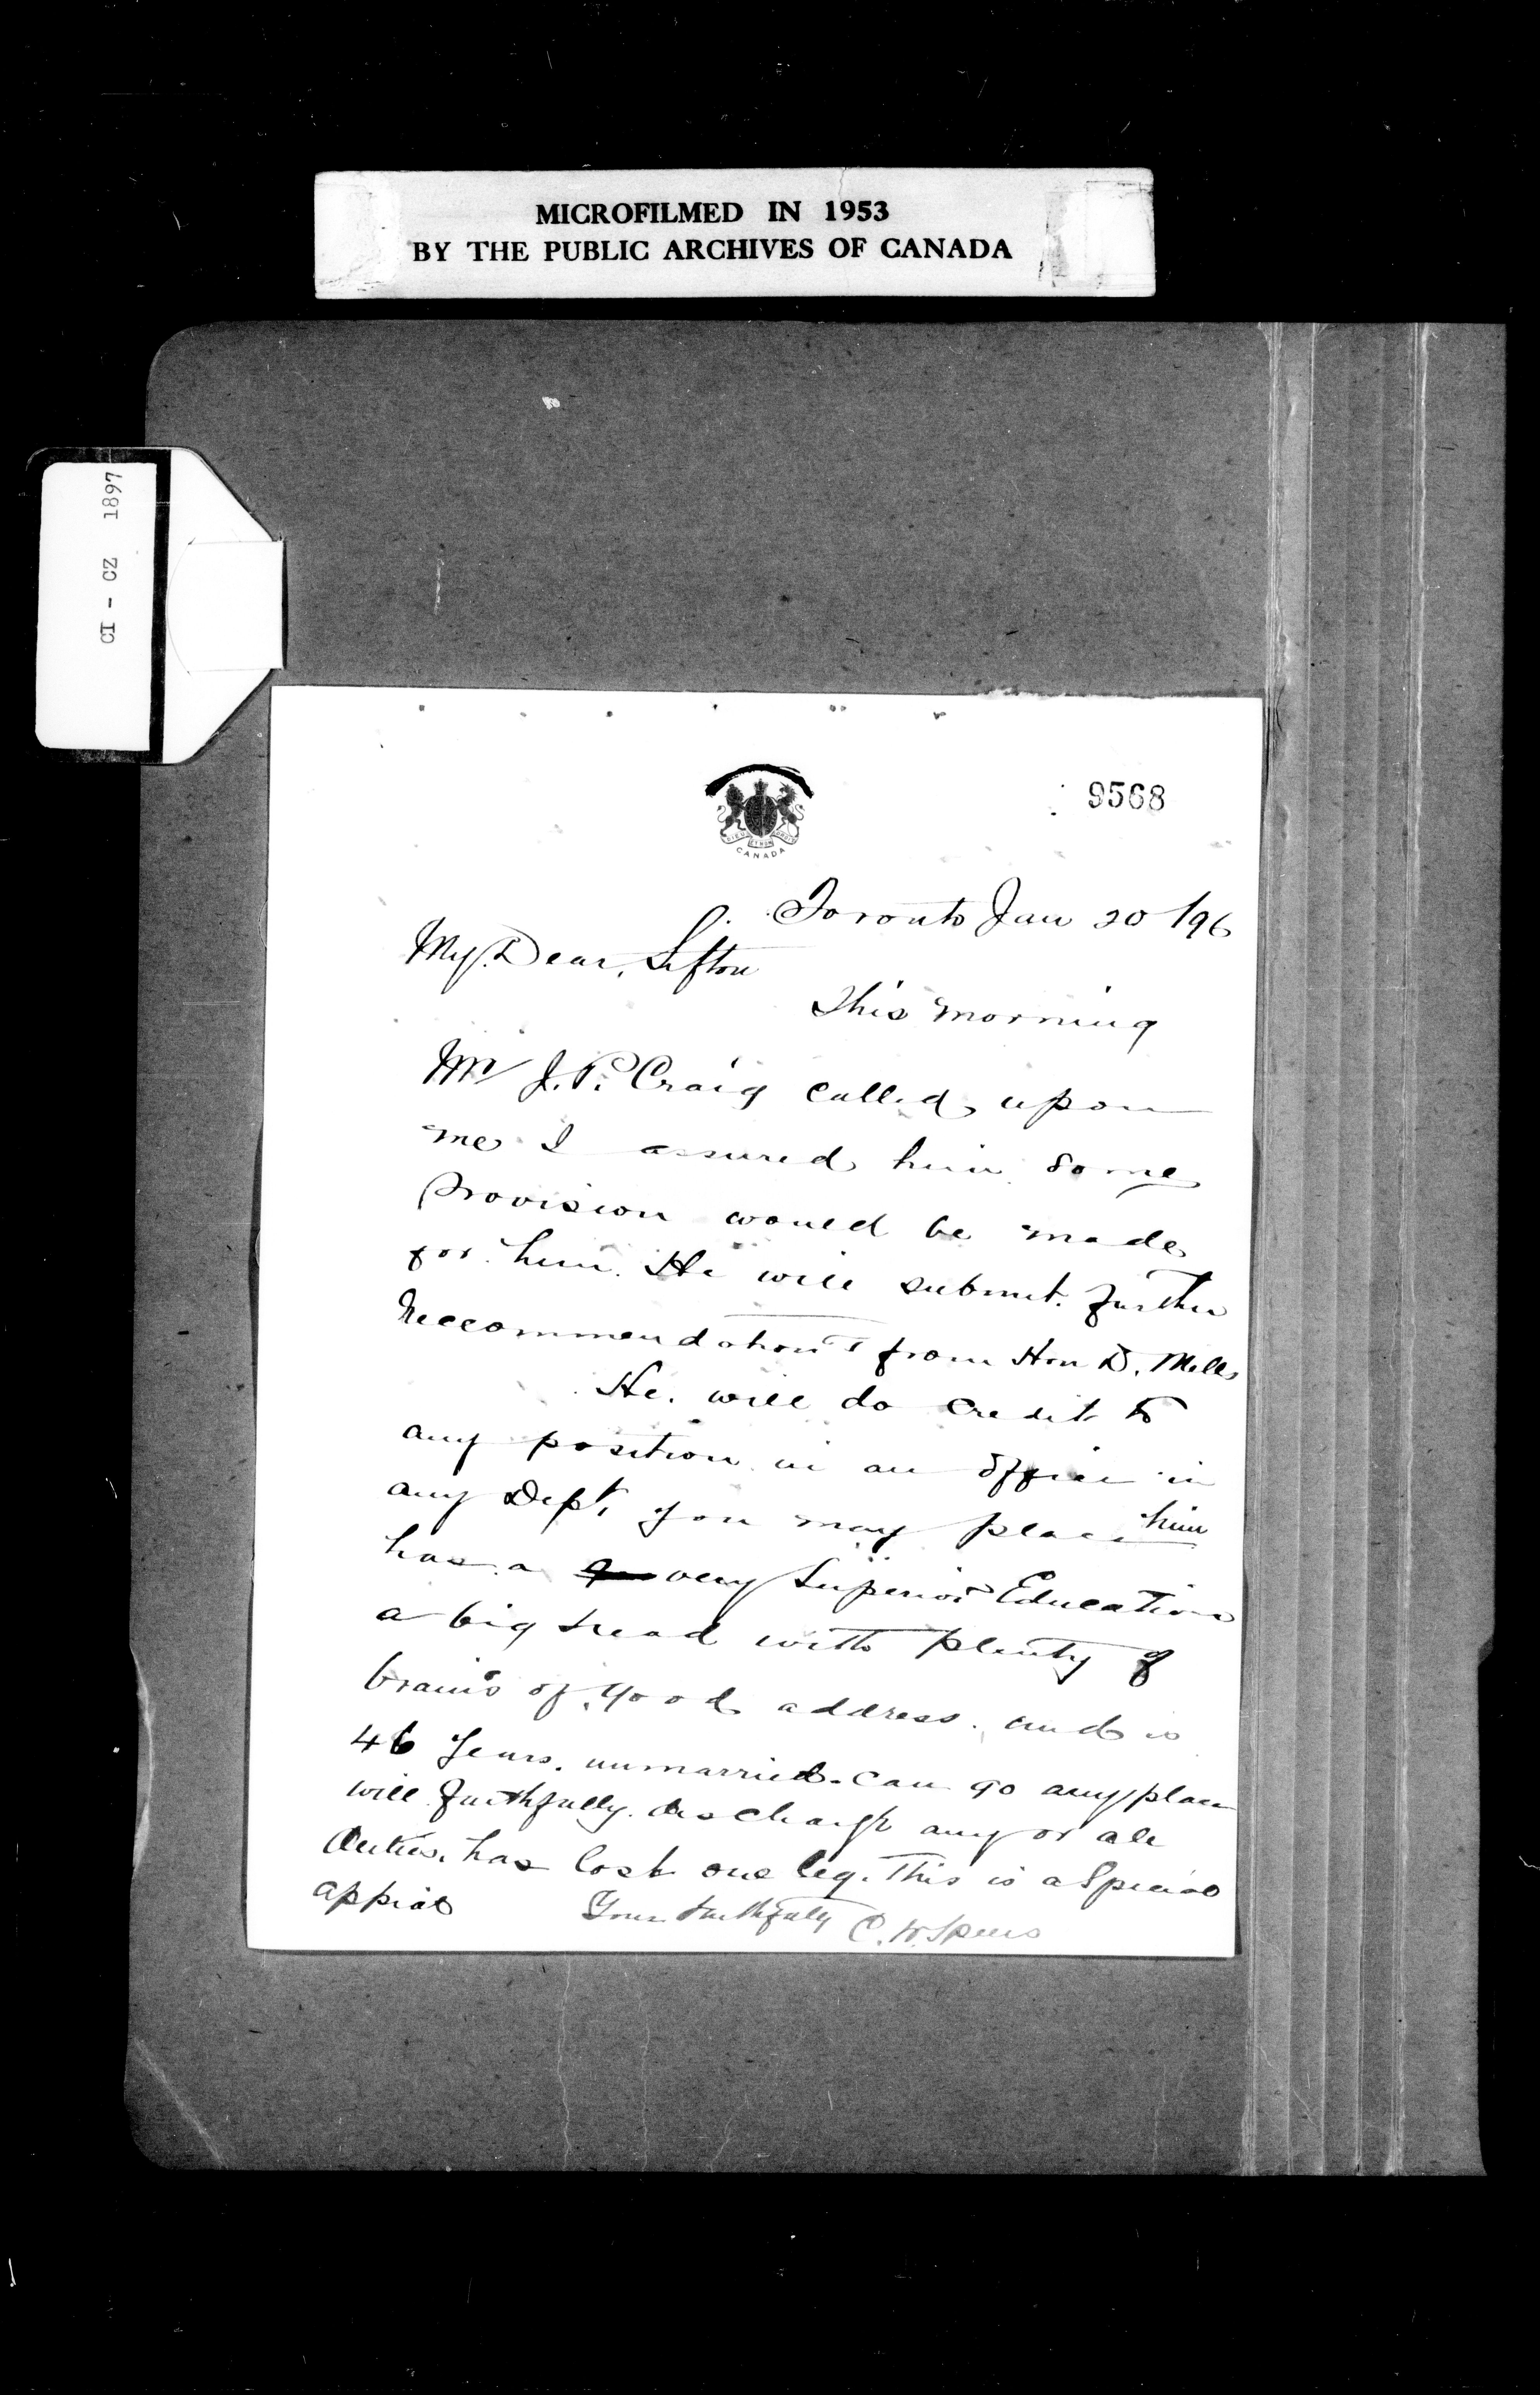 MICROFILMED IN 1953
BY THE PUBLIC ARCHIVES OF CANADA
CI - CZ 1897
9568
CANADA
Toronto Jan 20/96
My Dear, Sifton
This morning
Mr J. P. Craig called upon
me I assured him some
provision would be made
for him. He will submit. further
Reccommendations from Hon D. Mills
He. will do credit to
any position in an office in
any Dept, you may place him
has a very Superior Education
a big head with plenty of
brains of good address. and is
46 years. unmarried. can go any place
will faithfully. discharge any or all
duties. has lost one leg. This is a Special
appeal
Yours faithfully C. W. Speers